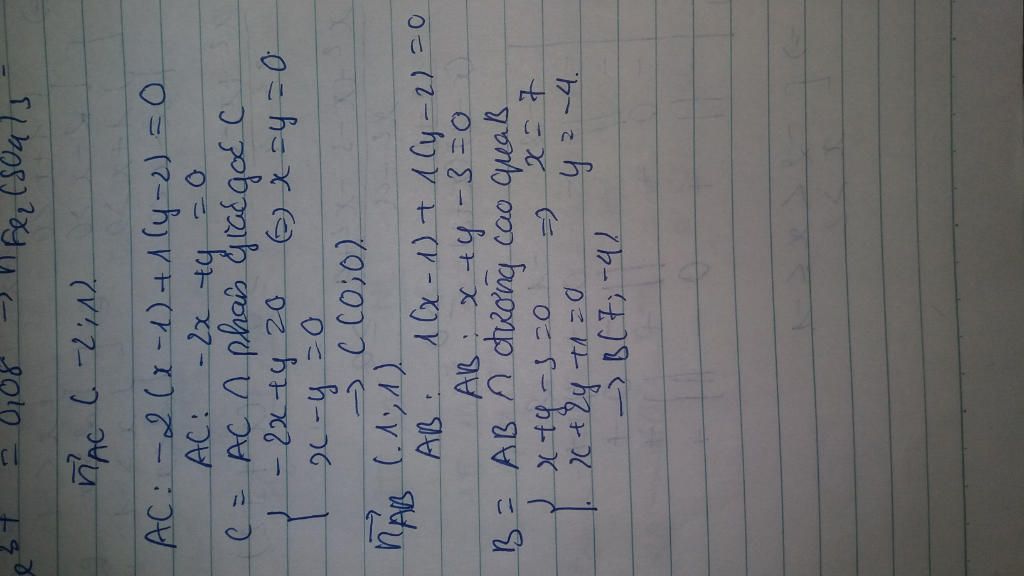 e³⁺ = 0,08 → nFe₂(SO₄)₃ =
n⃗AC (-2;1)
AC: -2(x-1)+1(y-2)=0
AC: -2x+y=0
C = AC ∩ phân giác góc C
{ -2x+y=0 (=) x=y=0.
x-y=0
→ C(0;0)
n⃗AB (1;1)
AB: 1(x-1)+1(y-2)=0
AB: x+y-3=0
B = AB ∩ đường cao qua B
{ x+y-3=0 => x=7
x+2y+1=0 y=-4.
→ B(7;-4)